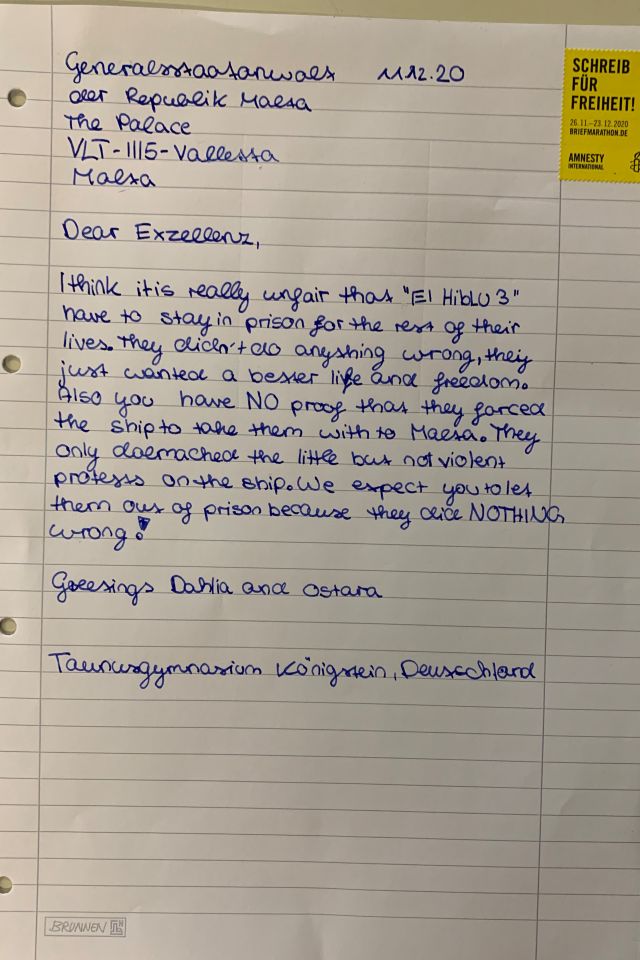 Generalsstaatanwalt 11.12.20
der Republik Malta
The Palace
VLT-1115-Valletta
Malta
Dear Exzellenz,
I think it is really unfair that "El Hiblu 3"
have to stay in prison for the rest of their
lives. They didn't do anything wrong, they
just wanted a better life and freedom.
Also you have NO proof that they forced
the ship to take them with to Malta. They
only the little but not violent
protests on the ship. We expect you to let
them out of prison because they did NOTHING
wrong!
Greetings Dahlia and Ostara
Taunusgymnasium Königstein, Deutschland
SCHREIB
FÜR
FREIHEIT!
26.11.–23.12.2020
BRIEFMARATHON.DE
AMNESTY
INTERNATIONAL
BRUNNEN